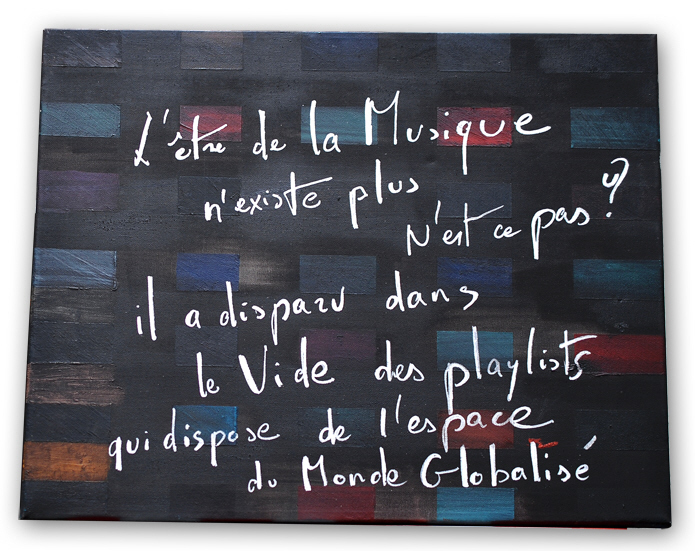 L'être de la Musique
n'existe plus
N'est ce pas ?
il a disparu dans
le Vide des playlists
qui dispose de l'espace
du Monde Globalisé